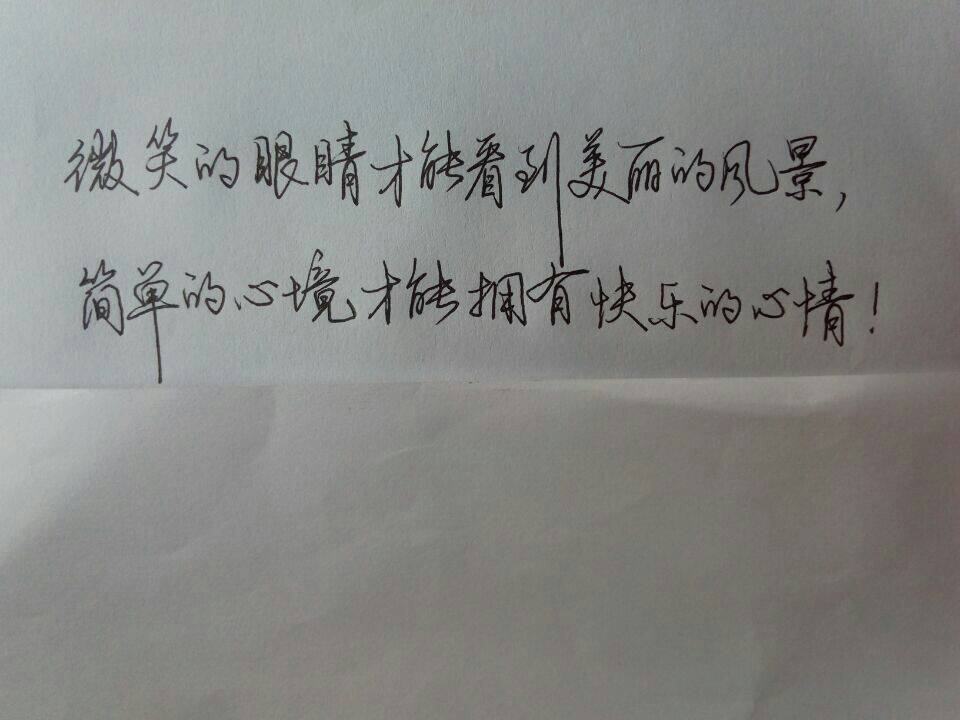 微笑的眼睛才能看到美丽的风景，
简单的心境才能拥有快乐的心情！